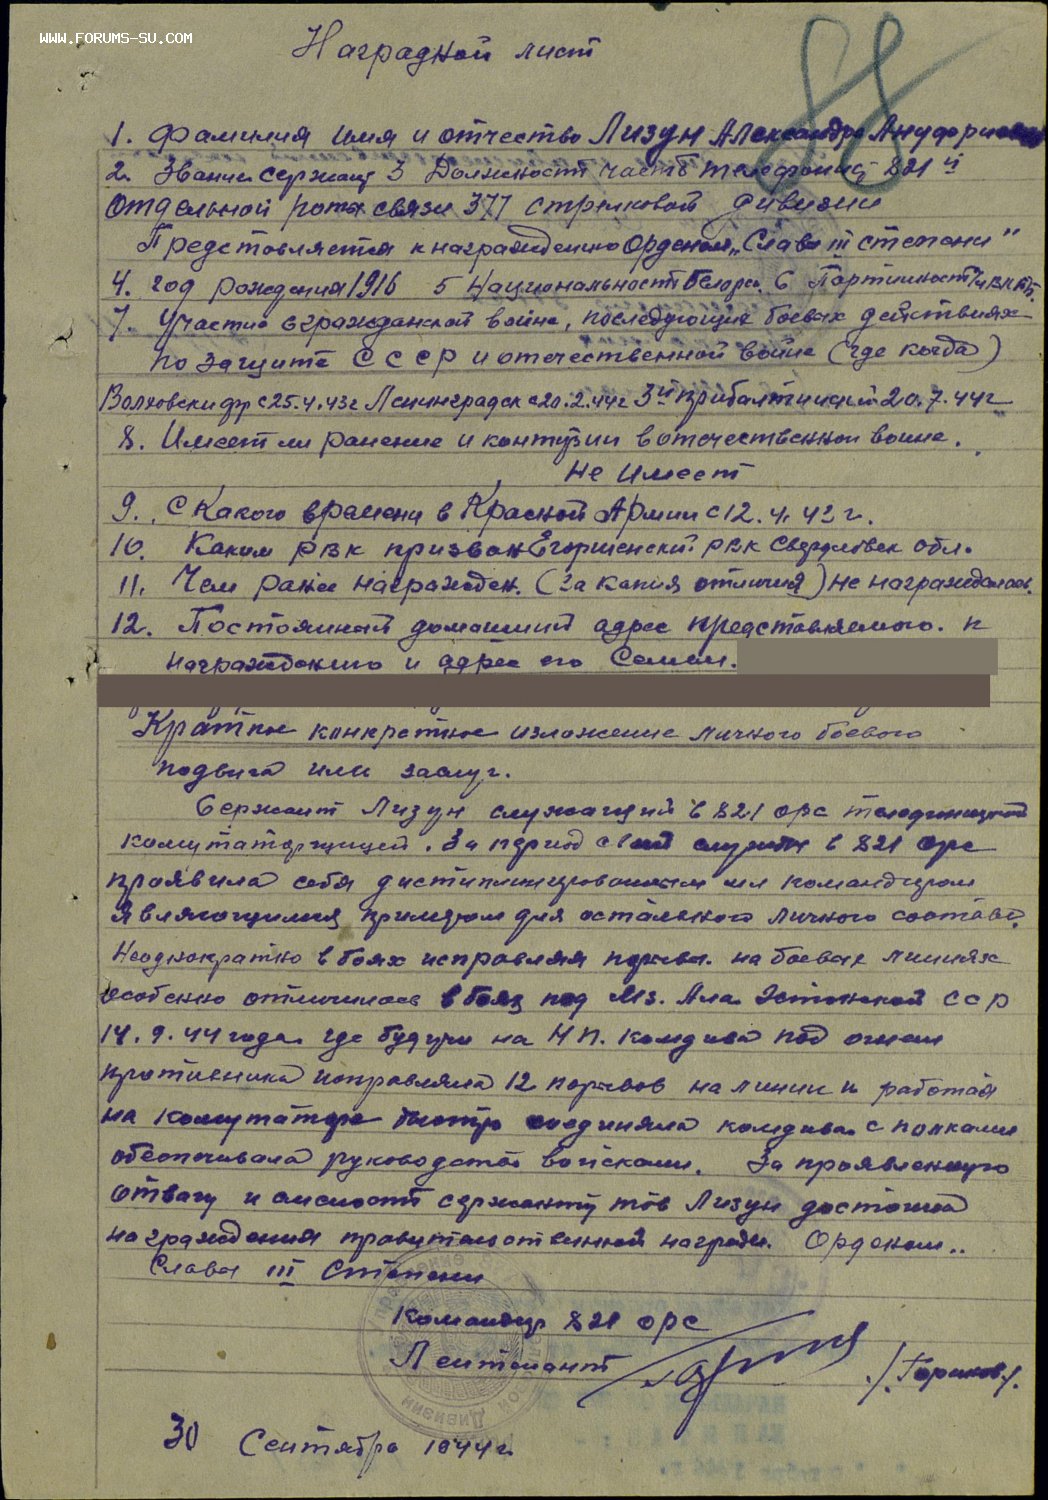 WWW.FORUMS-SU.COM
88
Наградной лист
1. Фамилия имя и отчество Лизун Александра
2. Звание сержант 3 Должность часть телефонист 821й
отдельной роты связи 377 стрелковой дивизии
Представляется к награждению Орденом „Слава III степени"
4. год рождения 1916 5 Национальность Белорс. 6 Партийность
7. Участие в гражданской войне, последующих боевых действиях
по защите СССР и отечественной войне (где когда)
Волховский фр с 25.4.43г Ленинградск с 20.2.44г 3й прибалтийский 20.7.44г
8. Имеет ли ранение и контузии в отечественной войне.
Не имеет
9. С Какого времени в Красной Армии с 12.4.42г.
10. Каким РВК призван Егоршенский РВК Свердловск обл.
11. Чем ранее награжден. (За какия отличия) не награждалась.
12. Постоянный домашний адрес представляемого к
награждению и адрес его Семьи.
Краткое конкретное изложение личного боевого
подвига или заслуг.
Сержант Лизун служащий в 821 орс
комутаторщицей. За период своей службы в 821 орс
проявила себя дистиплинированным мл командиром
являющимся примером для остального личного состава.
Неоднократно в боях исправляя порывы на боевых линиях
особенно отличилась в боях под Мз. Ала Эстонской ССР
14.9.44 года где будучи на НП. комдива под огнем
противника исправляла 12 порывов на линии и работая
на комутаторе быстро соединяла комдива с полками
обеспечивала руководство войсками. За проявленную
отвагу и смелость сержант тов Лизун достойна
награждения правительственной награды. Орденом..
Слава III Степени
Командир 821 орс
Лейтенант /Горинов/.
30 Сентября 1944г.